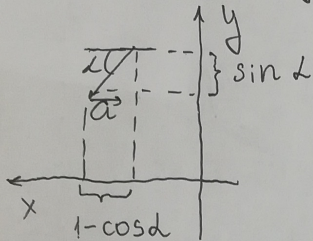 y
α
} sin α
a
x
1-cosα